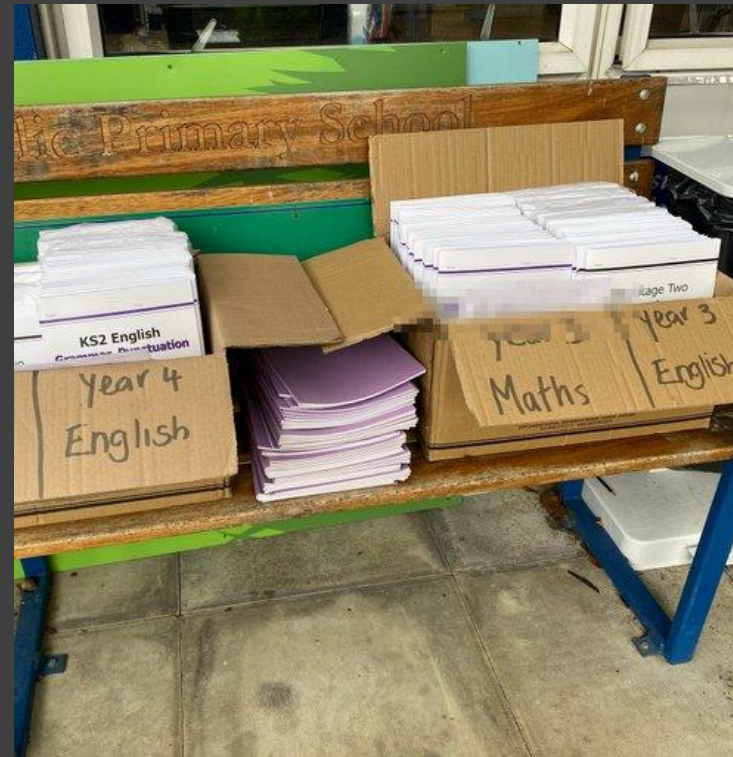 lic Primary School
KS2 English
Grammar, Punctuation
tage Two
Year 4
English
Year 3
Maths
Year 3
English